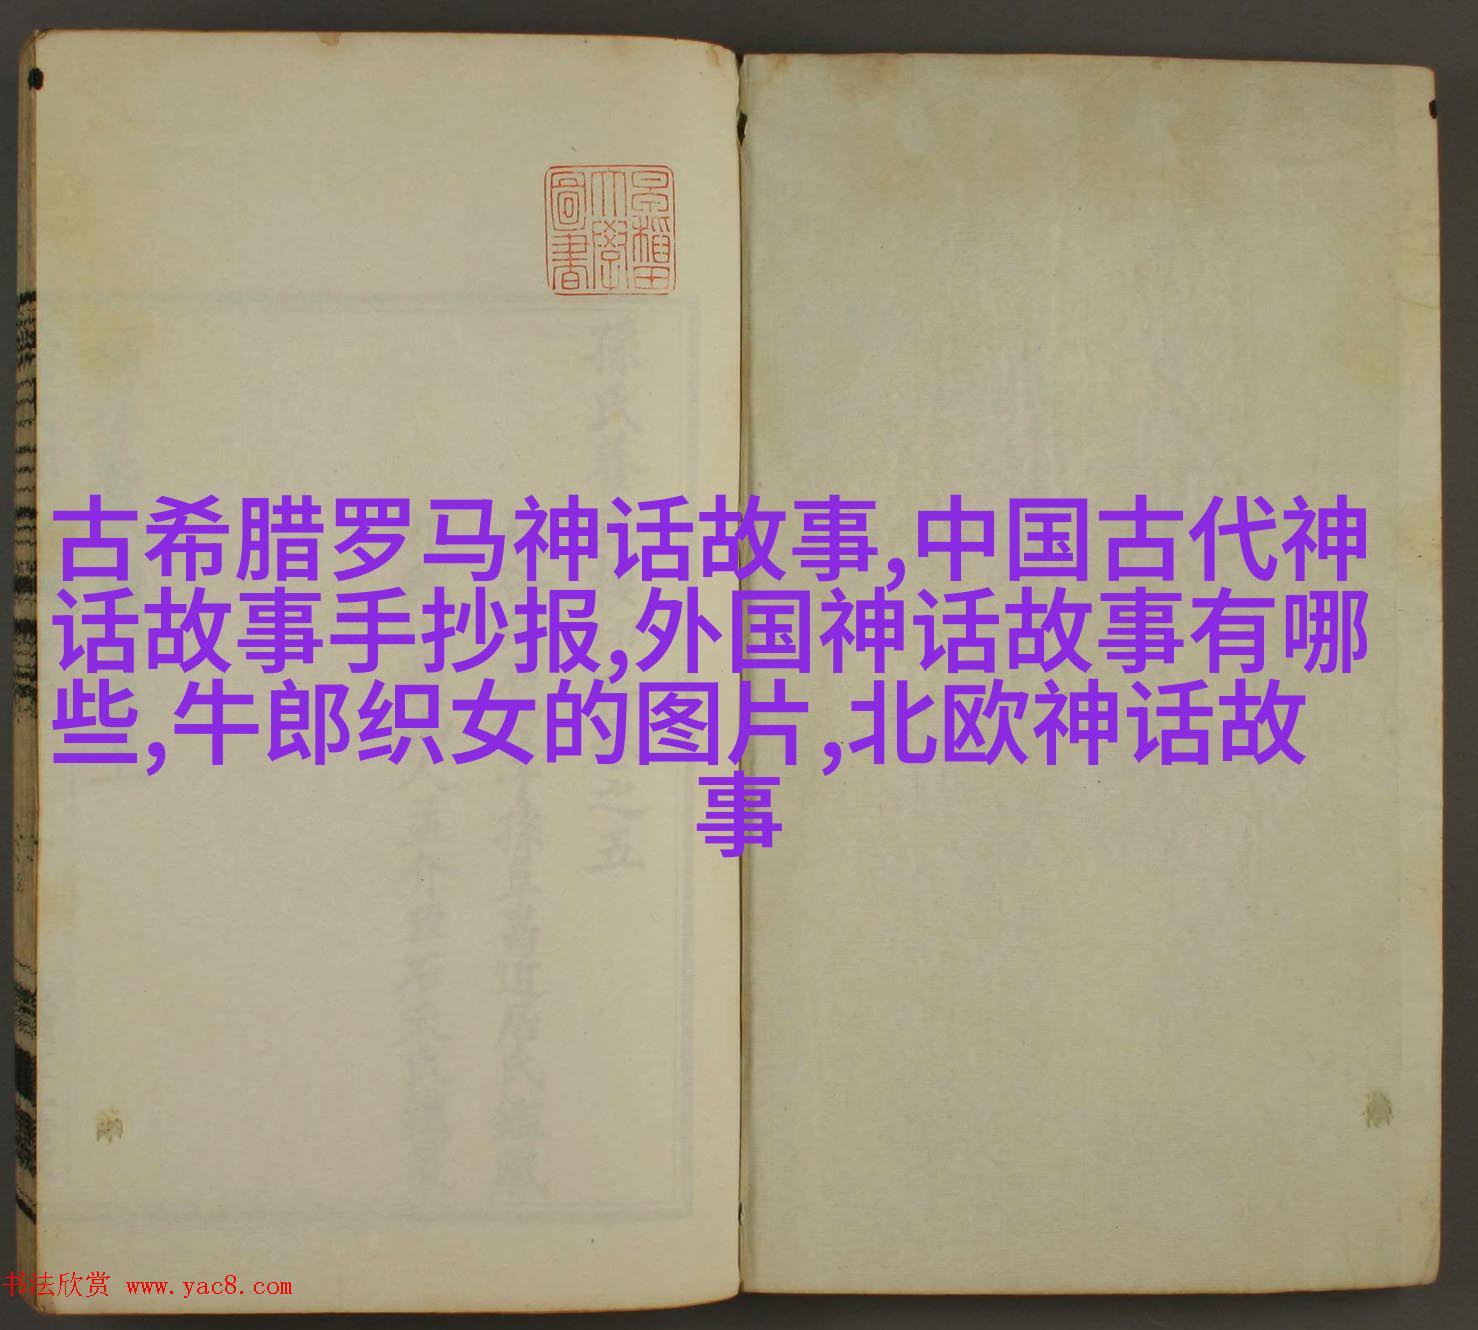 早稲田
大學
圖書
古希腊罗马神话故事,中国古代神
话故事手抄报,外国神话故事有哪
些,牛郎织女的图片,北欧神话故
事
书法欣赏 www.yac8.com